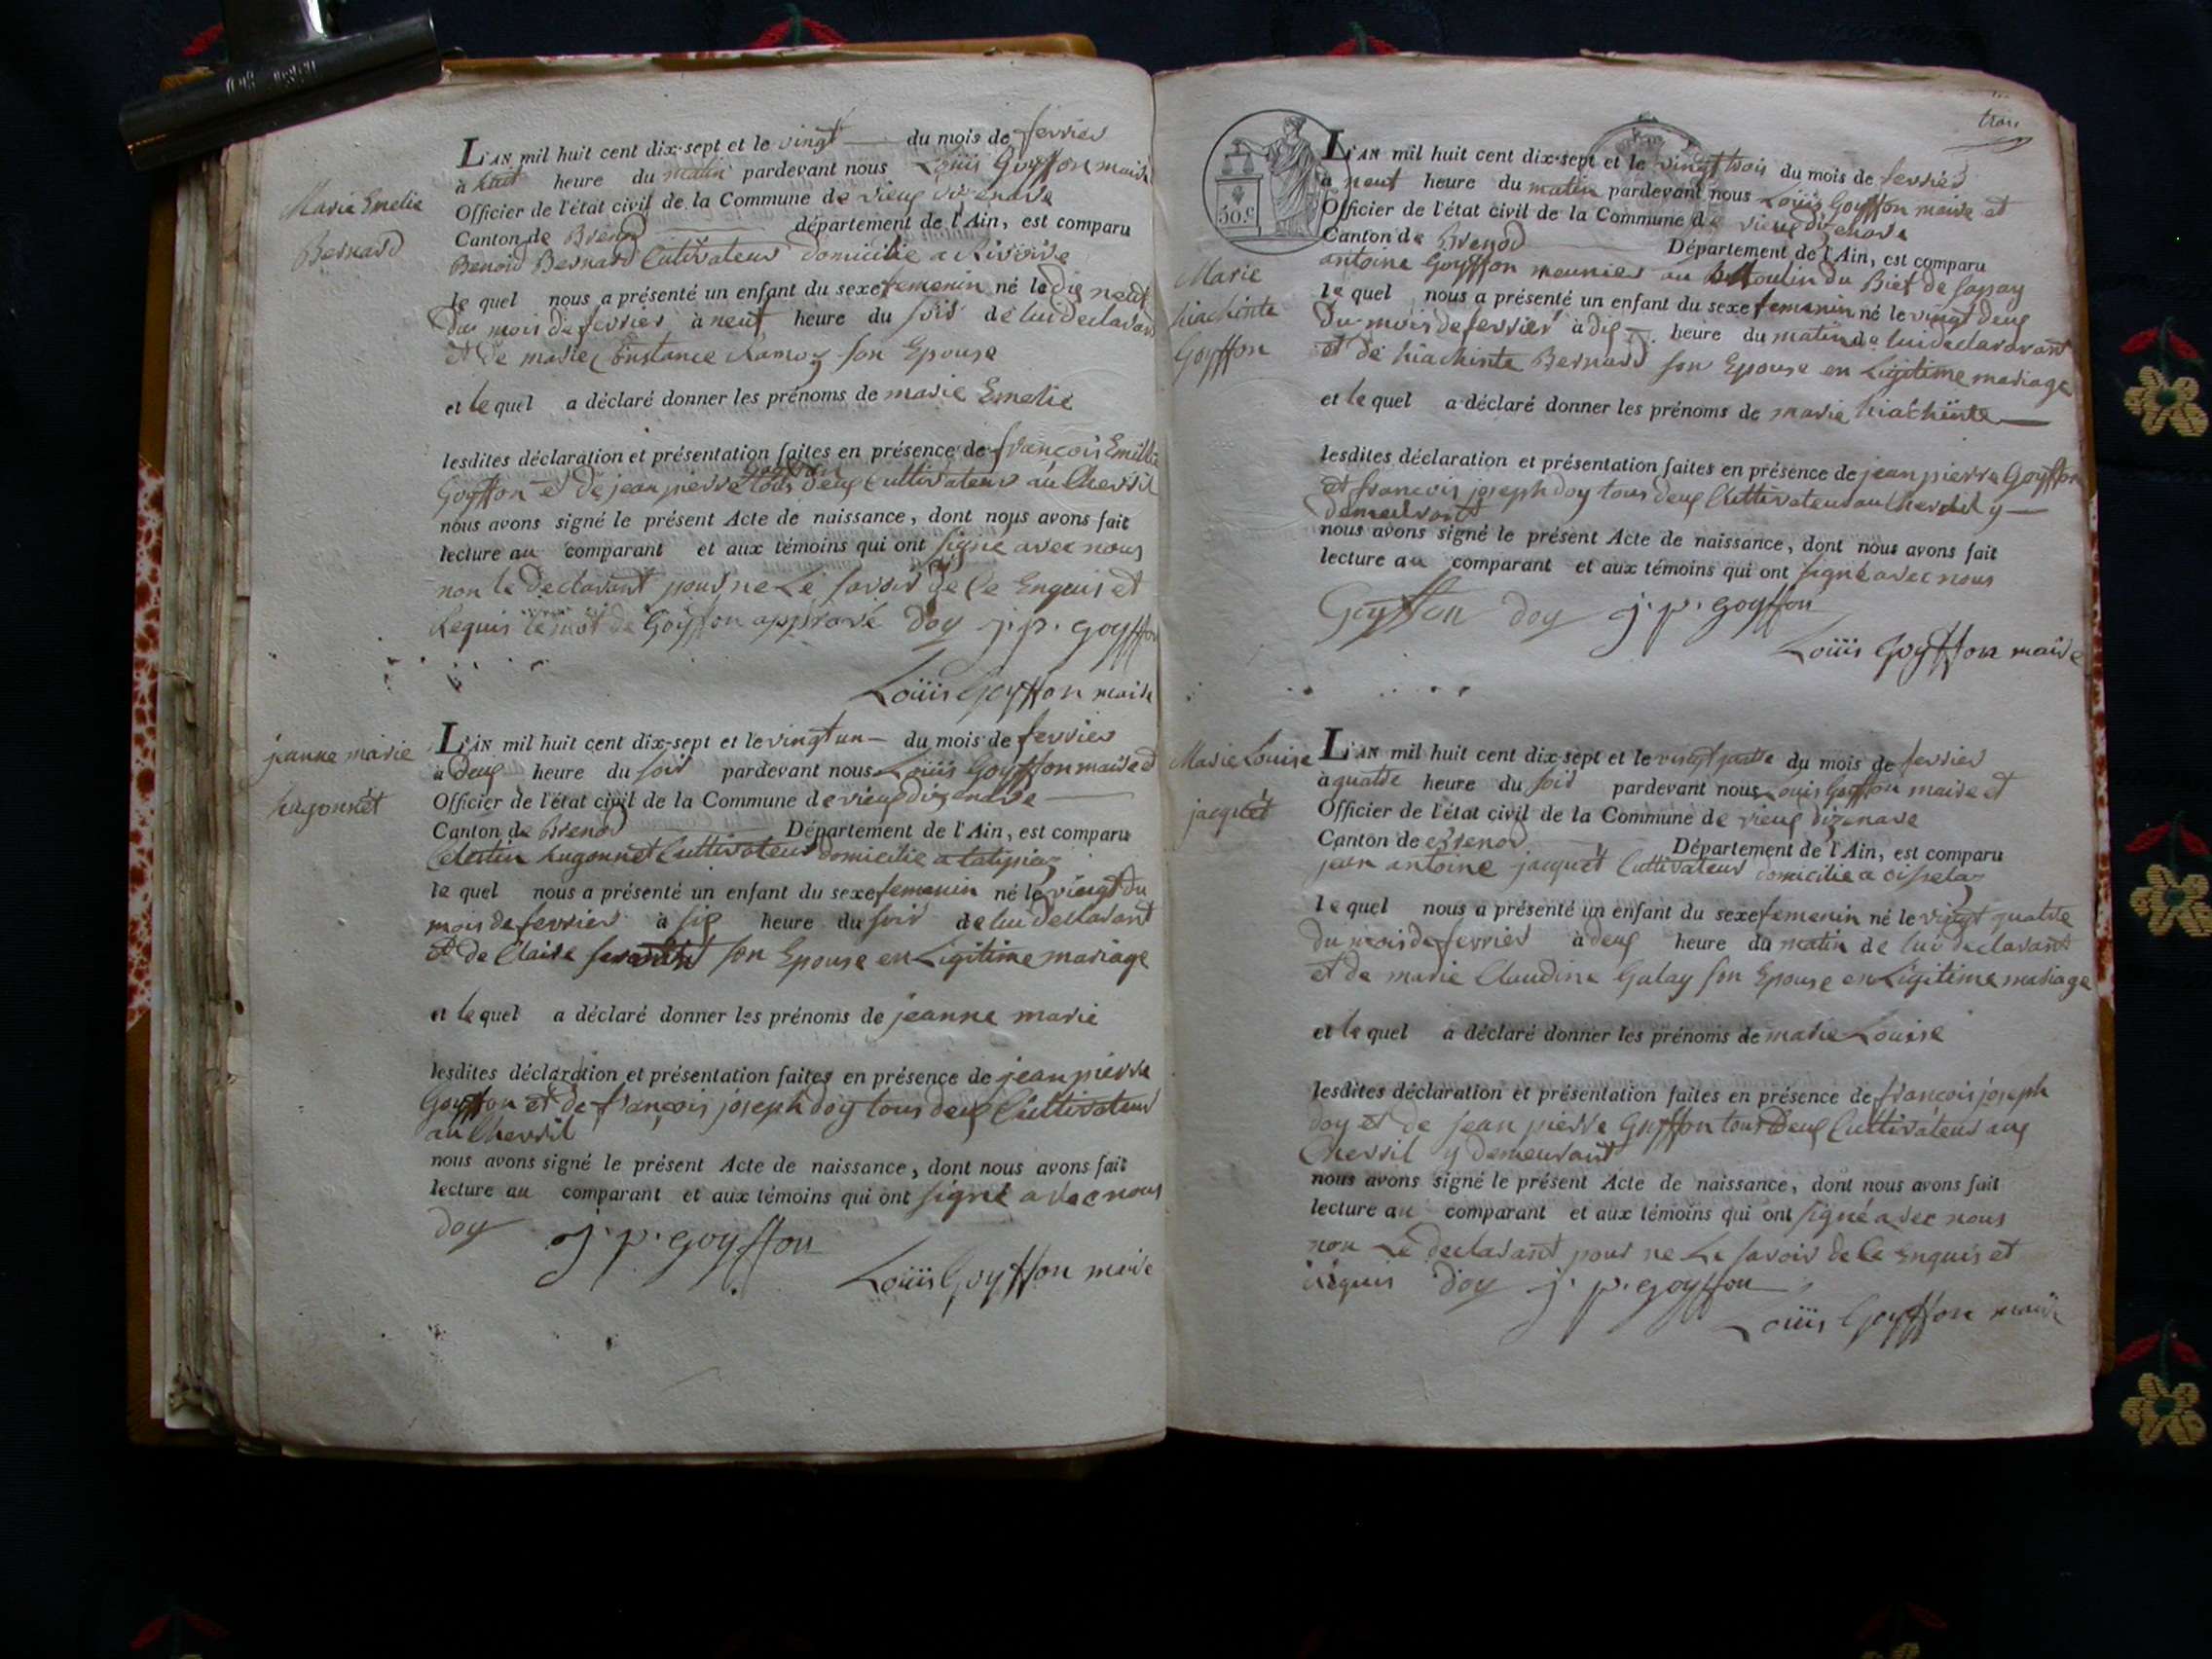 Marie Emelie
Bernard
L'AN mil huit cent dix-sept et le vingt du mois de fevrier
à huit heure du matin pardevant nous Louis Goyffon maire
Officier de l'état civil de la Commune de vieux dizenave
Canton de Brenod département de l'Ain, est comparu
Benoid Bernard Cultivateur domicilié a
le quel nous a présenté un enfant du sexe femenin né le dix neuf
du mois de fevrier à neuf heure du soir de lui declarant
et de marie Constance Ramoz son Epouse
et le quel a déclaré donner les prénoms de marie Emelie
lesdites déclaration et présentation faites en présence de françois
Goyffon et de jean pierre Goyffon tous deux Cultivateurs au Chevril
nous avons signé le présent Acte de naissance, dont nous avons fait
lecture au comparant et aux témoins qui ont signé avec nous
non le declarant pour ne le savoir de ce Enquis et
Requis le mot de Goyffon approuvé doy j. p. goyffon
Louis Goyffon maire
jeanne marie
hugonnet
L'AN mil huit cent dix-sept et le vingt un du mois de fevrier
à deux heure du soir pardevant nous Louis Goyffon maire et
Officier de l'état civil de la Commune de vieux dizenave
Canton de Brenod Département de l'Ain, est comparu
Celestin hugonnet Cultivateur domicilié a
le quel nous a présenté un enfant du sexe femenin né le vingt du
mois de fevrier à six heure du soir de lui declarant
et de Claire son Epouse en Ligitime mariage
et le quel a déclaré donner les prénoms de jeanne marie
lesdites déclaration et présentation faites en présence de jean pierre
Goyffon et de françois joseph doy tous deux Cultivateur
au Chevril
nous avons signé le présent Acte de naissance, dont nous avons fait
lecture au comparant et aux témoins qui ont signé avec nous
doy j. p. goyffon
Louis Goyffon maire
trois
50 c
Marie
hiachinte
Goyffon
L'AN mil huit cent dix-sept et le vingt trois du mois de fevrier
à neuf heure du matin pardevant nous Louis Goyffon maire et
Officier de l'état civil de la Commune de vieux dizenave
Canton de Brenod Département de l'Ain, est comparu
antoine Goyffon meunier au Moulin du Bief de
le quel nous a présenté un enfant du sexe femenin né le vingt deux
du mois de fevrier à dix heure du matin de lui declaravant
et de hiachinte Bernard son Epouse en Ligitime mariage
et le quel a déclaré donner les prénoms de marie hiachinte
lesdites déclaration et présentation faites en présence de jean pierre Goyffon
et françois joseph doy tous deux Cultivateur au Chevril y
demeurants
nous avons signé le présent Acte de naissance, dont nous avons fait
lecture au comparant et aux témoins qui ont signé avec nous
Goyffon doy j. p. goyffon
Louis Goyffon maire
Marie Louise
jacquet
L'AN mil huit cent dix-sept et le vingt quatre du mois de fevrier
à quatre heure du soir pardevant nous Louis Goyffon maire et
Officier de l'état civil de la Commune de vieux dizenave
Canton de Brenod Département de l'Ain, est comparu
jean antoine jacquet Cultivateur domicilié a oisselaz
le quel nous a présenté un enfant du sexe femenin né le vingt quatre
du mois de fevrier à deux heure du matin de lui declarant
et de marie Claudine Galay son Epouse en Ligitime mariage
et le quel a déclaré donner les prénoms de marie Louise
lesdites déclaration et présentation faites en présence de françois joseph
doy et de jean pierre Goyffon tous Deux Cultivateur aux
Chevril y demeurant
nous avons signé le présent Acte de naissance, dont nous avons fait
lecture au comparant et aux témoins qui ont signé avec nous
non Le declarant pour ne Le savoir de Ce Enquis et
Requis doy j. p. goyffon
Louis Goyffon maire